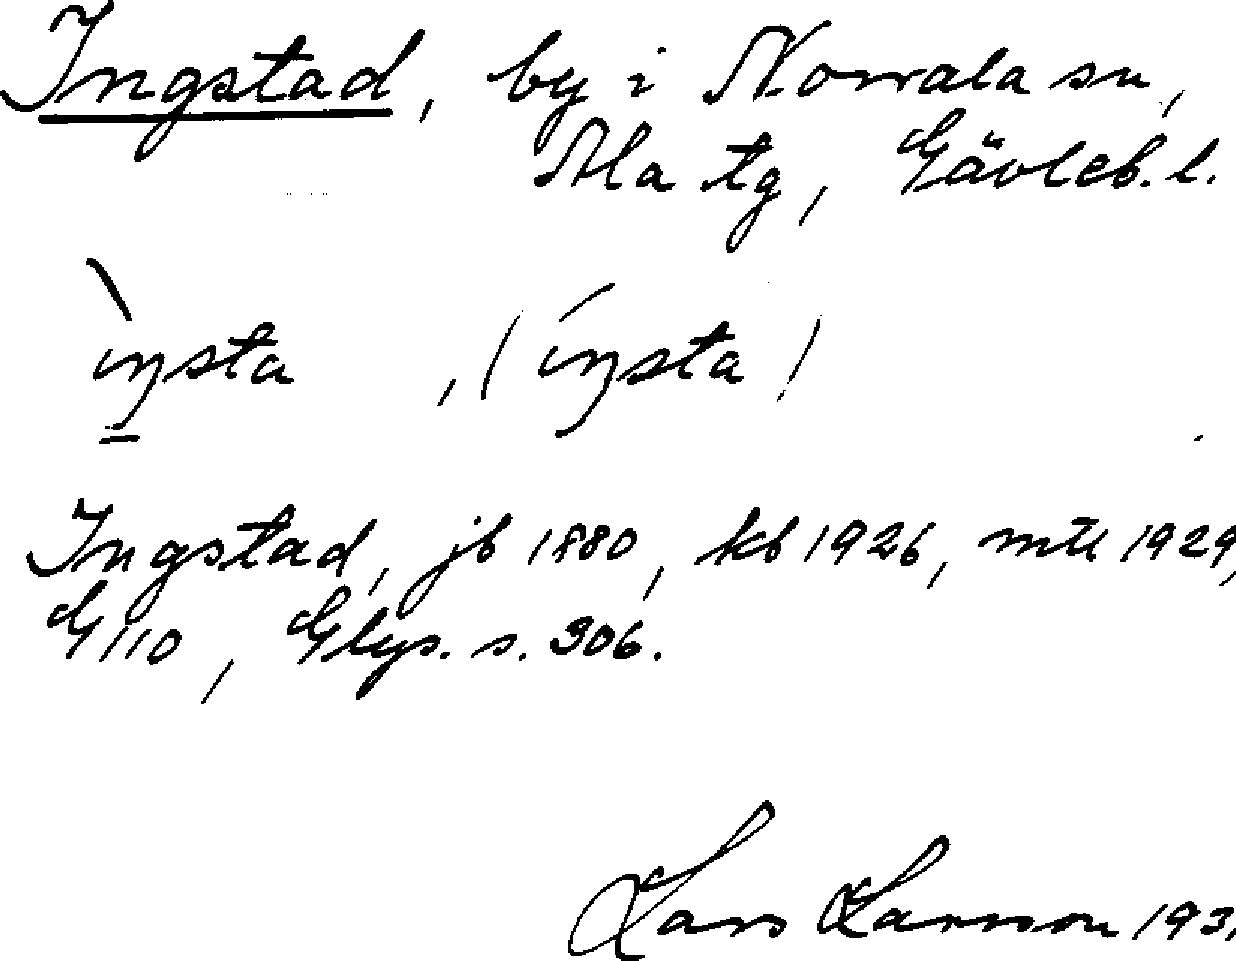 Ingstad, by i Norrala sn,
Ala tg, Gävleb. l.
ìŋsta , (íŋsta)
Ingstad, jb 1880, kb 1926, mtl 1929,
G 110, Glys. s. 306.
Lars Larsson 193